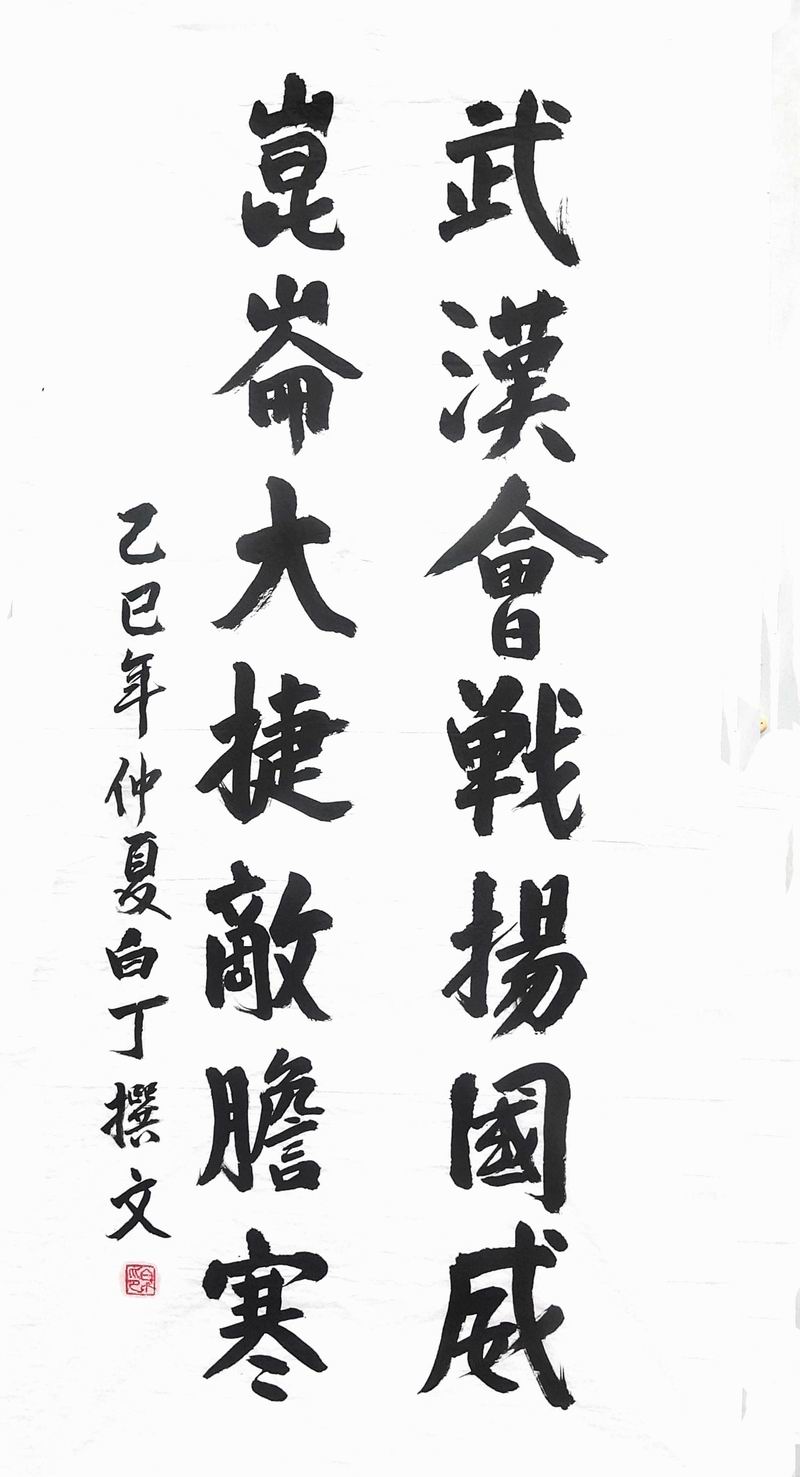 武漢會戦揚國威
崑崙大捷敵膽寒
乙巳年仲夏白丁撰文